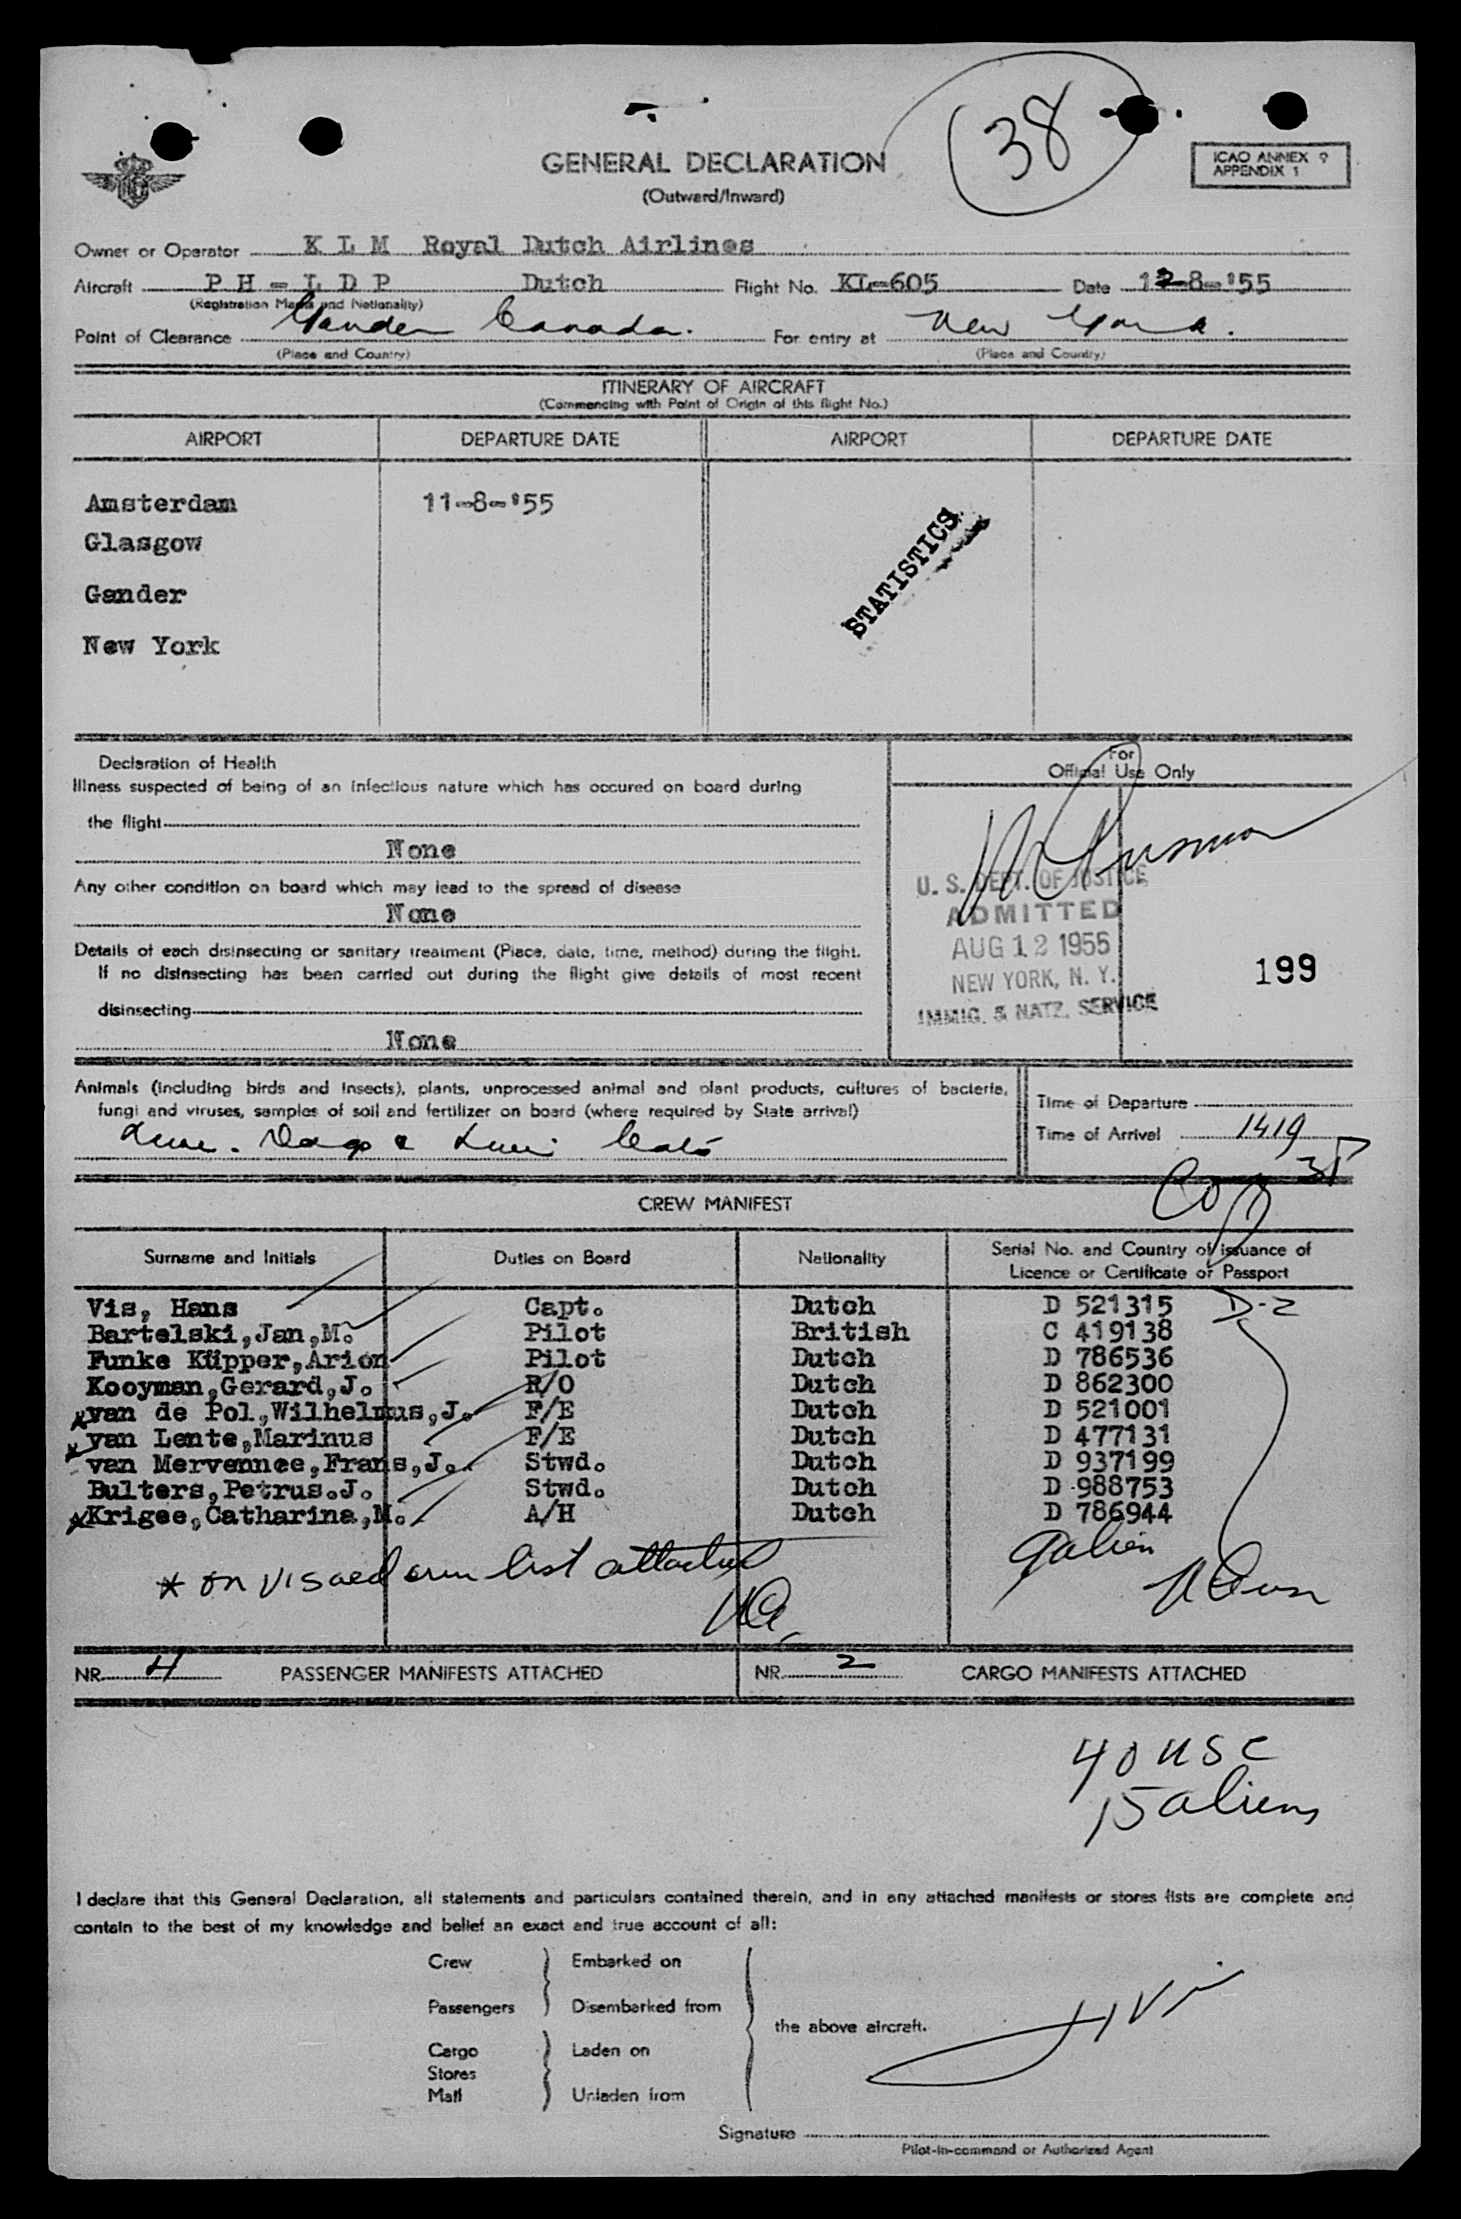 38
GENERAL DECLARATION
(Outward/Inward)
ICAO ANNEX 9
APPENDIX 1
Owner or Operator K L M Royal Dutch Airlines
Aircraft P H - L D P Dutch Flight No. KL-605 Date 12-8-'55
(Registration Marks and Nationality)
Point of Clearance Gander Canada. For entry at New York.
(Place and Country) (Place and Country)
ITINERARY OF AIRCRAFT
(Commencing with Point of Origin of this flight No.)
AIRPORT DEPARTURE DATE AIRPORT DEPARTURE DATE
Amsterdam 11-8-'55
Glasgow
Gander
New York
STATISTICS
Declaration of Health
Illness suspected of being of an infectious nature which has occured on board during
the flight
None
Any other condition on board which may lead to the spread of disease
None
Details of each disinsecting or sanitary treatment (Place, date, time, method) during the flight.
If no disinsecting has been carried out during the flight give details of most recent
disinsecting
None
For
Official Use Only
U. S. DEPT. OF JUSTICE
ADMITTED
AUG 12 1955
NEW YORK, N. Y.
IMMIG. & NATZ. SERVICE
199
Animals (including birds and insects), plants, unprocessed animal and plant products, cultures of bacteria,
fungi and viruses, samples of soil and fertilizer on board (where required by State arrival)
Time of Departure
Time of Arrival 1419
CREW MANIFEST
Surname and Initials Duties on Board Nationality Serial No. and Country of issuance of
Licence or Certificate or Passport
Vis, Hans Capt. Dutch D 521315 D-2
Bartelski,Jan,M. Pilot British C 419138
Funke Küpper,Arion Pilot Dutch D 786536
Kooyman,Gerard,J. R/O Dutch D 862300
van de Pol,Wilhelmus,J. F/E Dutch D 521001
van Lente,Marinus F/E Dutch D 477131
van Mervennee,Frans,J. Stwd. Dutch D 937199
Bulters,Petrus.J. Stwd. Dutch D 988753
Krigee,Catharina,M. A/H Dutch D 786944
* on visaed crew list attached
9 alien
NR 4 PASSENGER MANIFESTS ATTACHED NR 2 CARGO MANIFESTS ATTACHED
40 USC
15 aliens
I declare that this General Declaration, all statements and particulars contained therein, and in any attached manifests or stores lists are complete and
contain to the best of my knowledge and belief an exact and true account of all:
Crew Embarked on
Passengers Disembarked from
the above aircraft.
Cargo Laden on
Stores
Mail Unladen from
H Vis
Signature
Pilot-in-command or Authorized Agent